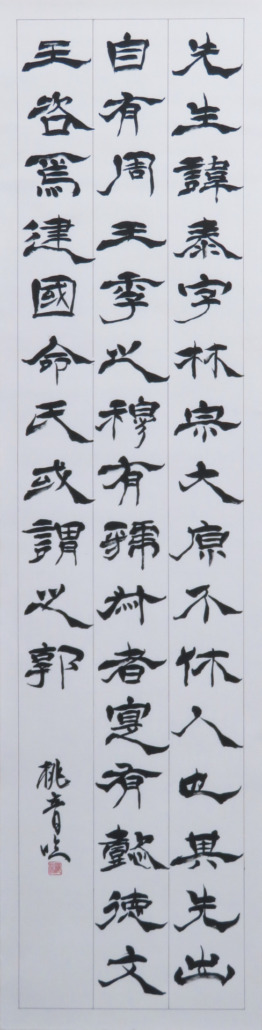 先生諱泰字林宗大原不休人也其先出
自有周王季之穆有虢叔者寔有懿德文
王咨焉建國命氏或謂之郭
桃音